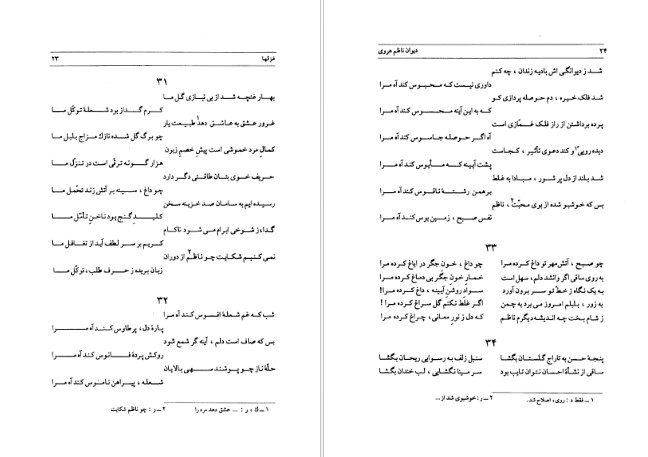 غزلها ۲۳
۳۱
بهار غنچه شد از بی نیازی گل ما
کرم گداز بود شعلهٔ توکّل ما
غرور عشق به عاشق دهد طبیعت یار
چو برگ گل شده نازک مزاج بلبل ما
کمالِ مرد خموشی است پیش خصم زبون
هزار گونه ترقّی است در تنزّل ما
حریف خوی بتان طاقتی دگر دارد
چو داغ، سینه بر آتش زند تحمّل ما
رسیده ایم به سامان صد خزینه سخن
کلید گنج بود ناخن تأمّل ما
گدا، ز شوخی ابرام می شود ناکام
کریم بر سر لطف آید از تغافل ما
نمی کنیم شکایت چو ناظم از دوران
زبان بریده ز حرف طلب، توکّل ما
۳۲
شب که غم شعلهٔ افسوس کند آه مرا
پارهٔ دل، پر طاوس کند آه مرا
بس که صاف است دلم، آینه گر شمع شود
روکش پردهٔ فانوس کند آه مرا
حلّهٔ ناز چو پوشند سهی بالایان
شعله، پیراهن ناموس کند آه مرا
۱ــ ک، ر: ... عشق دهد مرد را ۲ــ ر: چو ناظم شکایت
۲۴ دیوان ناظم هروی
شد ز دیوانگی اش بادیه زندان، چه کنم
داوری نیست که محبوس کند آه مرا
شد فلک خیره، دم حوصله پردازی کو
که به این آینه محسوس کند آه مرا
پرده برداشتن از راز فلک غمّازی است
آه اگر حوصله جاسوس کند آه مرا
دیده رویی۱ و کند دعوی تأثیر، کجاست
پشت آیینه که مأیوس کند آه مرا
شد بلند از دل پر شور، مبادا به غلط
برهمن رشتهٔ ناقوس کند آه مرا
بس که خوشبو شده از بوی محبّت۲، ناظم
نفس صبح، زمین بوس کند آه مرا
۳۳
چو صبح، آتش مهر تو داغ کرده مرا چو داغ، خون جگر در ایاغ کرده مرا
به روی ساقی اگر وانشد دلم، سهل است خمار خون جگر بی دماغ کرده مرا
به یک نگاه ز خط تو سر برون آورد سواد روشن آیینه، داغ کرده مرا!
به زور، بلبلم امروز می برد به چمن اگر غلط نکنم گل سراغ کرده مرا!
ز شام بخت چه اندیشه دیگرم ناظم که دل ز نور معانی، چراغ کرده مرا
۳۴
پنجهٔ حسن به تاراج گلستان بگشا سنبل زلف به رسوایی ریحان بگشا
ساقی از نشأهٔ احسان نتوان تایب بود سر مینا نگشایی، لب خندان بگشا
۱ــ فقط د: روی، اصلاح شد. ۲ــ ر: خوشبوی شد از...